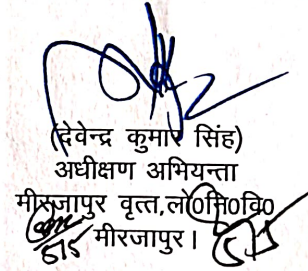 (देवेन्द्र कुमार सिंह)
अधीक्षण अभियन्ता
मीरजापुर वृत्त,लो0नि0वि0
मीरजापुर।